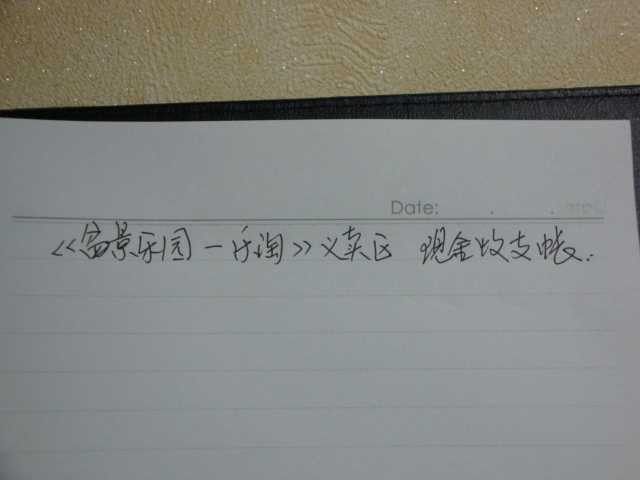 Date:
《富景乐园一乐淘》义卖区 现金收支帐.